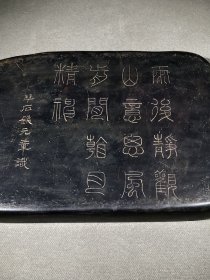 雨後靜觀
山意思風
前閒看月
精神
石錢元識